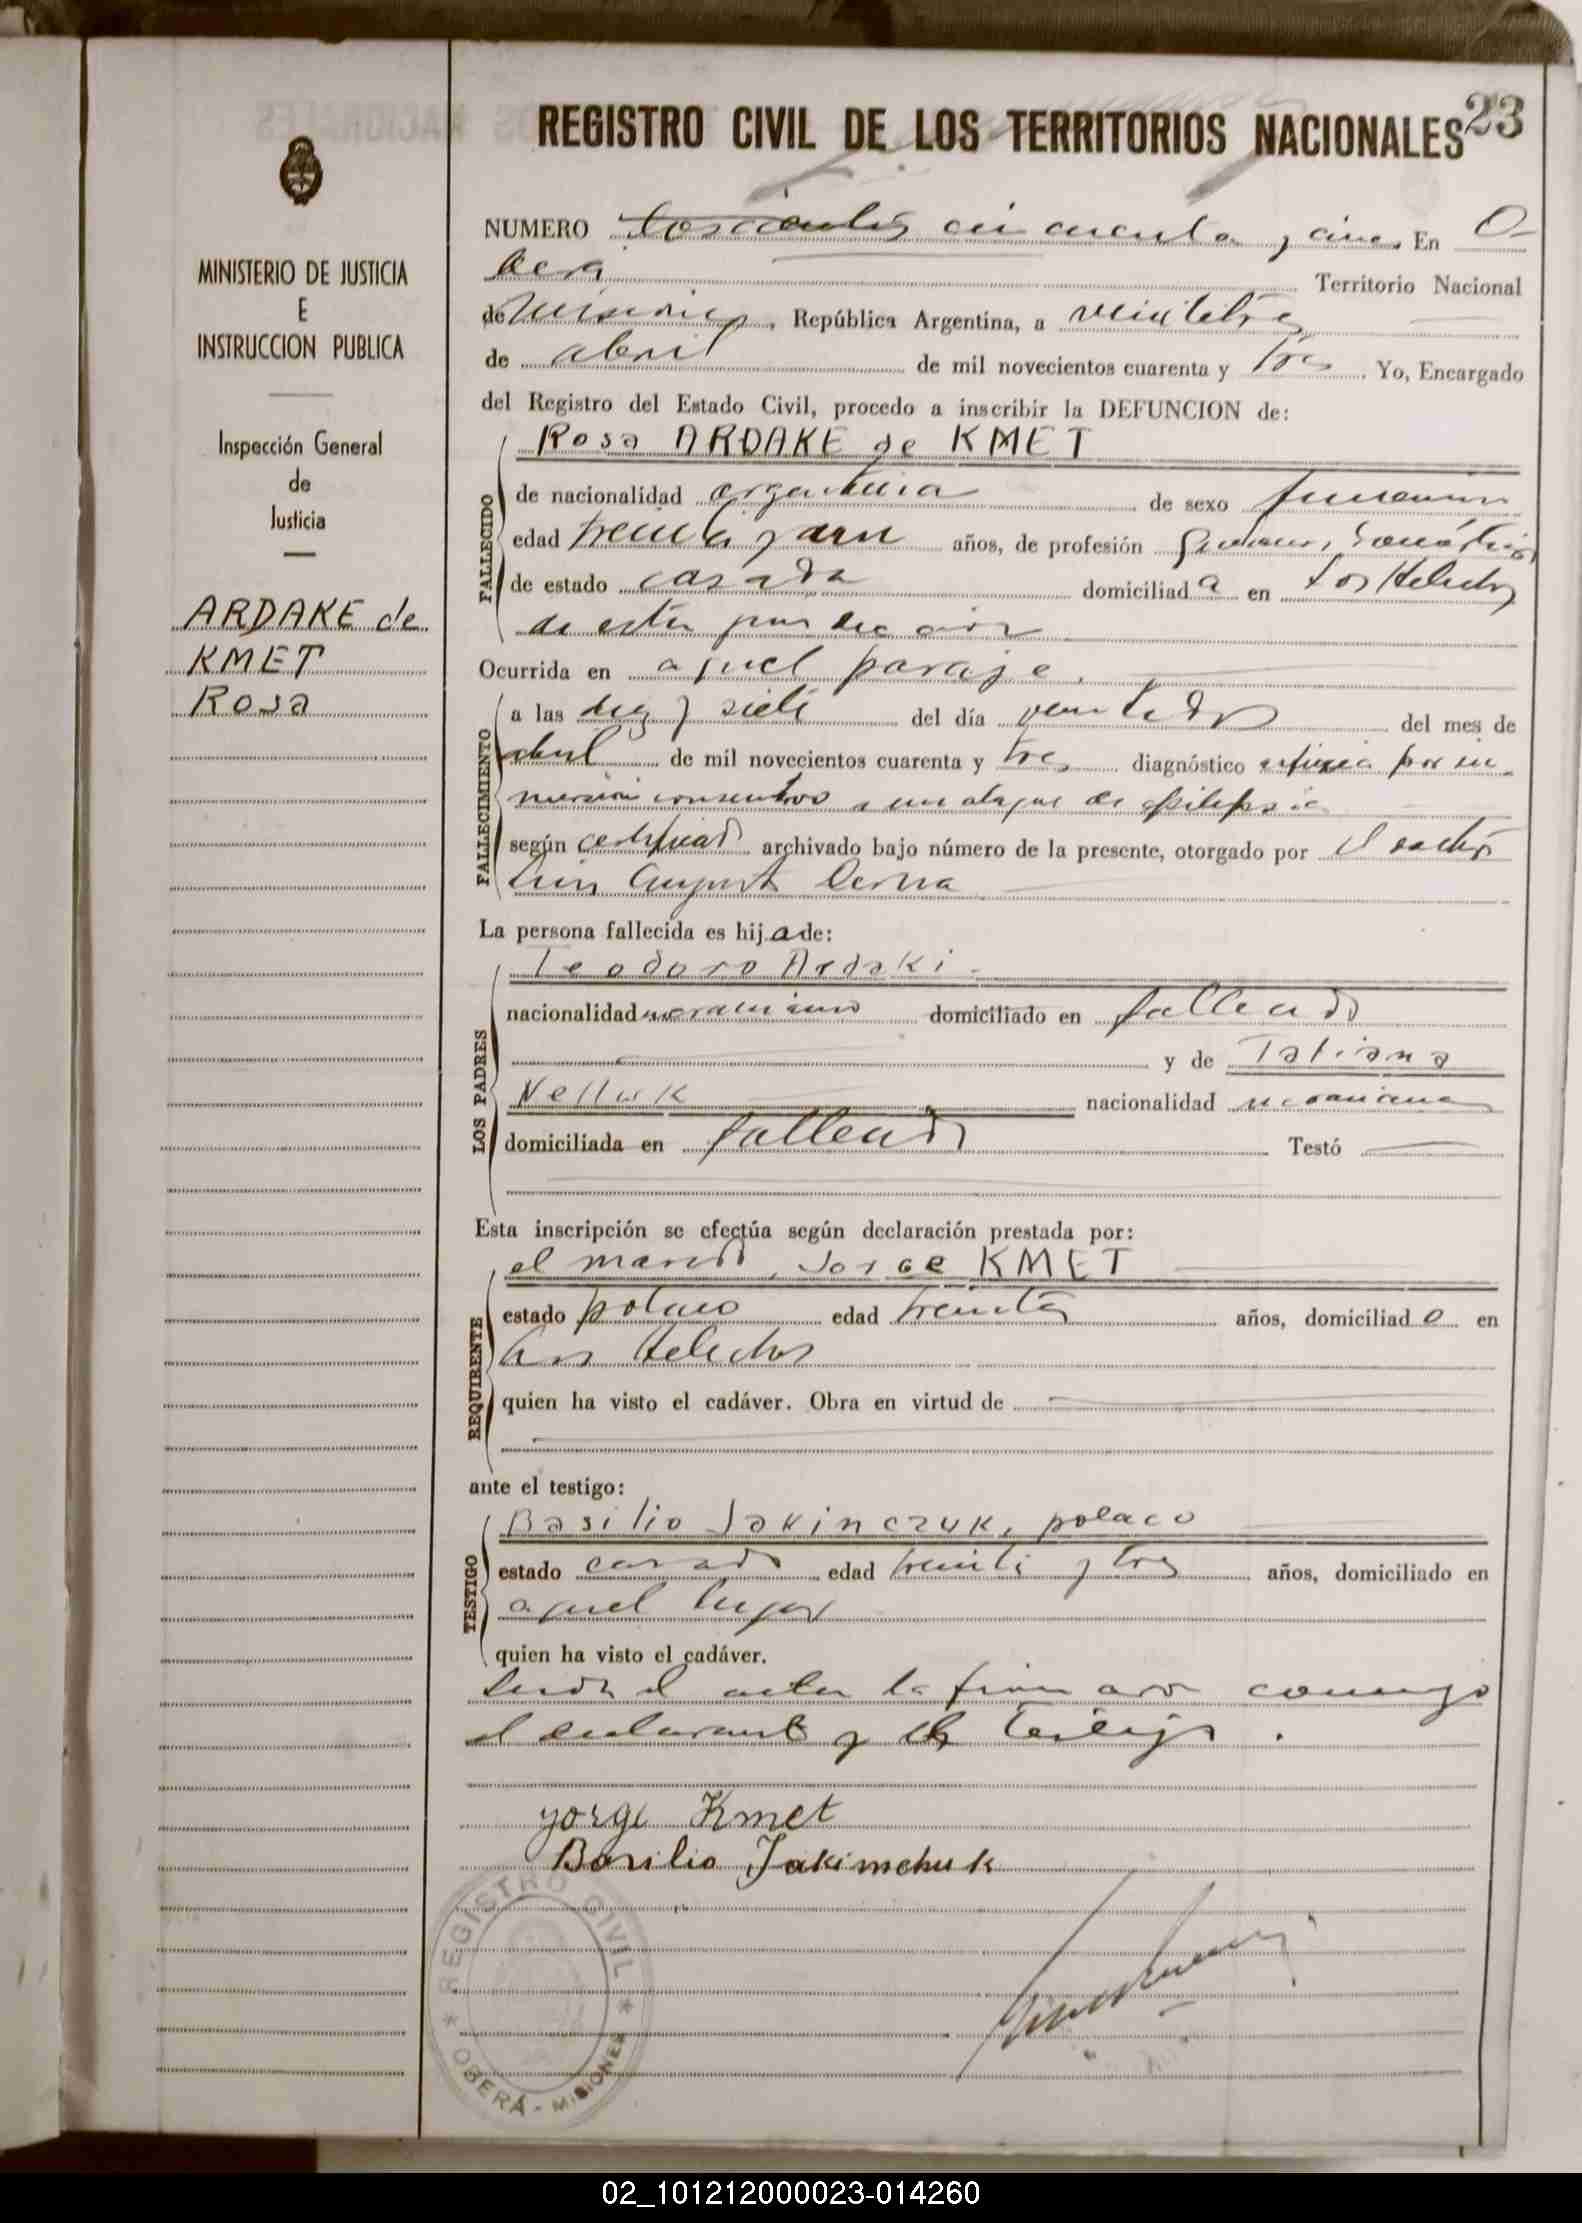 23
REGISTRO CIVIL DE LOS TERRITORIOS NACIONALES
MINISTERIO DE JUSTICIA
E
INSTRUCCION PUBLICA
Inspección General
de
Justicia
ARDAKE de
KMET
Rosa
NUMERO cincuenta y cinco En O-
bera Territorio Nacional
de Misiones, República Argentina, a veintitres
de abril de mil novecientos cuarenta y tres. Yo, Encargado
del Registro del Estado Civil, procedo a inscribir la DEFUNCION de:
Rosa ARDAKE de KMET
FALLECIDO
de nacionalidad argentina de sexo femenino
edad treinta y un años, de profesión
de estado casada domiciliada en Los Helechos
de esta jurisdiccion
Ocurrida en aquel paraje.
FALLECIMIENTO
a las diez y siete del día veintidos del mes de
abril de mil novecientos cuarenta y tres diagnóstico asfixia por in-
mersion consecutivo a un ataque de epilepsia
según certificado archivado bajo número de la presente, otorgado por el doctor
Luis Augusto
La persona fallecida es hija de:
LOS PADRES
Teodoro Ardaki
nacionalidad ucraniano domiciliado en fallecido
y de Tatiana
nacionalidad ucraniana
domiciliada en fallecido Testó
Esta inscripción se efectúa según declaración prestada por:
REQUIRENTE
el marido, Jorge KMET
estado polaco edad treinta años, domiciliado en
Los Helechos
quien ha visto el cadáver. Obra en virtud de
ante el testigo:
TESTIGO
Basilio Jakinczuk, polaco
estado casado edad treinta y tres años, domiciliado en
aquel lugar
quien ha visto el cadáver.
Leida el acta la firmaron conmigo
el declarante y el testigo.
Yorge Kmet
Basilio Jakimchuk
* REGISTRO CIVIL *
OBERÁ - MISIONES
02_101212000023-014260